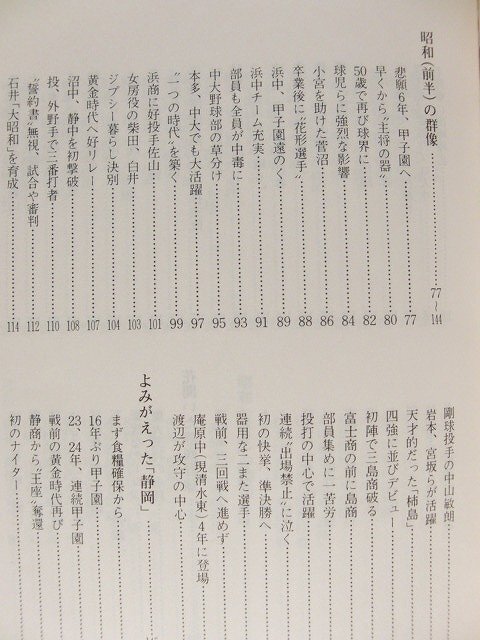 昭和(前半)の群像……77〜144
悲願6年、甲子園へ……77
早くから〝主将の器〟……80
50歳で再び球界に……82
球児らに強烈な影響……84
小宮を助けた菅沼……86
卒業後に〝花形選手〟……88
浜中、甲子園遠のく……89
浜中チーム充実……91
部員も全員が中毒に……93
中大野球部の草分け……95
本多、中大でも大活躍……97
〝一つの時代〟を築く……99
浜商に好投手佐山……101
女房役の柴田、白井……103
ジプシー暮らし決別……104
黄金時代へ好リレー……107
沼中、静中を初撃破……108
投、外野手で三番打者……110
〝誓約書〟無視、試合や審判……112
石井「大昭和」を育成……114
剛球投手の中山敏朗
岩本、宮坂らが活躍
天才的だった「柿島」
四強に並びデビュー
初陣で三島商破る
富士商の前に島商
部員集めに一苦労
投打の中心で活躍
連続〝出場禁止〟に泣く
初の快挙、準決勝へ
器用な二また選手
戦前、三回戦へ進めず
庵原中(現清水東)4年に登場
渡辺が攻守の中心
よみがえった「静岡」
まず食糧確保から
16年ぶり甲子園
23、24年、連続甲子園
戦前の黄金時代再び
静商から〝王座〟奪還
初のナイター